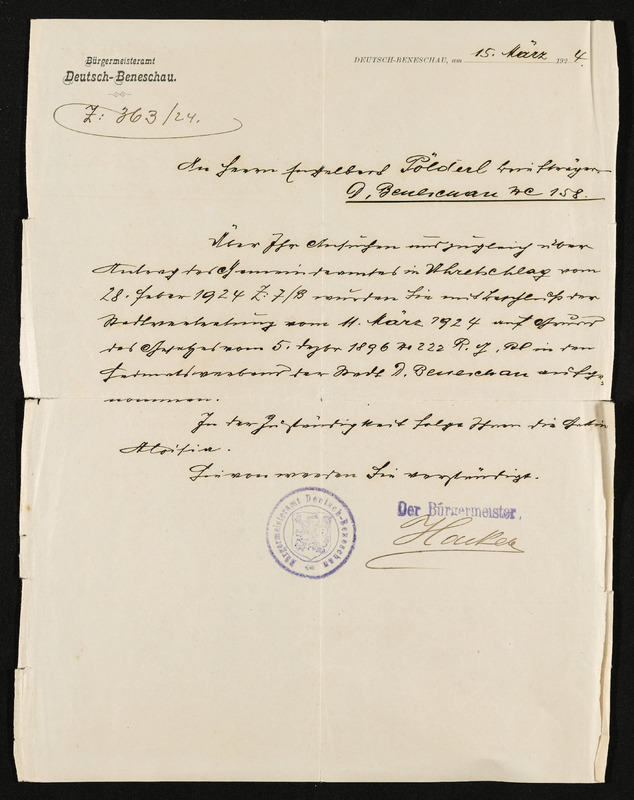 Bürgermeisteramt
Deutsch-Beneschau.
Z: 363/24.
DEUTSCH-BENESCHAU, am 15. März 1924.
An Herrn Engelbert Pölderl Briefträger
D, Beneschau NC 158.
Über Ihr Ansuchen und zugleich über
Antrag des Gemeindeamtes in Uhretschlag vom
28. Feber 1924 Z: 7/B wurden Sie mit Beschluß der
Stadtvertretung vom 11. März 1924 auf Grund
des Gesetzes vom 5. Dezbr. 1896 No 222 R. G. Bl in den
Heimatsverband der Stadt D. Beneschau aufge-
nommen.
In der Zuständigkeit folgt Ihnen die Gattin
Aloisia.
Hievon werden Sie verständigt.
Der Bürgermeister.
Bürgermeisteramt Deutsch-Beneschau